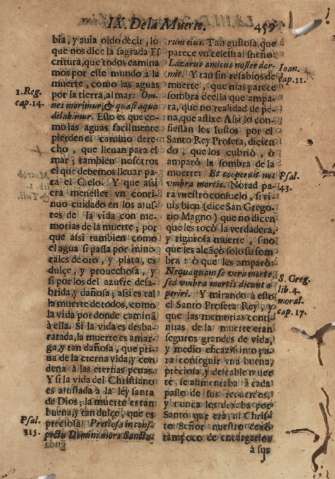 IX. De la Muerte. 459
bia, y auia oìdo decir, lo
que nos dice la sagrada Es
critura, que todos camina
mos por este mundo à la
muerte, como las aguas
por la tierra, al mar: Om-
nes morimur, & quasi aquæ
dilabimur. Esto es que co-
mo las aguas facilmente
pierden el camino dere-
cho, que lleuan para el
mar; tambien nosotros
el que debemos lleuar pa-
ra el Cielo. Y que asi
era menester vn conti-
nuo cuidado en los ajus-
tes de la vida con me-
morias de la muerte; por
que asi tambien como
el agua si passa por mine-
rales de oro, y plata, es
dulce, y prouechosa, y
si por los del azufre desa-
brida, y dañosa; asi es así
la muerte de todos, como
la vida por donde camina
à ella. Si la vida es desba-
ratada, la muerte es amar-
ga, y tan dañosa, que pri-
ua de la eterna vida, y con
dena à las eternas penas.
Y si la vida del Christiano
es ajustada à la ley santa
de Dios, la muerte es tan
buena, y tan dulce, que es
preciosa: Pretiosa in cons-
pectu Domini mors Sancto-
1. Reg.
cap. 14.
Psal.
115.
rum eius. Tan gustosa, que
parece vn celestial sueño:
Lazarus amicus noster dor-
mit. Y tan sin resabios de
muerte, que mas parece
sombra de ella que ampa-
ra, que no realidad de pe-
na, que aflixe Asi lo con-
fiessan los justos por el
Santo Rey Profeta, dicien
do, que los cubriò, ò
amparò la sombra de la
muerte: Et cooperuit nos
umbra mortis. Notad pa-
ra vuestro consuelo, fieles
bien (dice San Grego-
rio Magno) que no dicen
que les tocò la verdadera,
y rigurosa muerte, sino
que les alcançò solo su som
bra: ò que les amparò:
Nequaquam se vera morte,
sed umbra mortis dicunt
operiri. Y mirando à esto
el Santo Profeta Rey, y
que las memorias conti-
nuas de la muerte eran
seguros grandes de vida,
y medio eficacissimo pa-
ra conseguir vna buena,
preciosa, y deleitable muer
te
passo de sus
y nunca
Santo que
Señor nuestro
tampoco de encargarlos
à sus
Ioan.
cap. 11.
Psal.
43.
S. Greg.
lib. 4.
moral.
cap. 17.